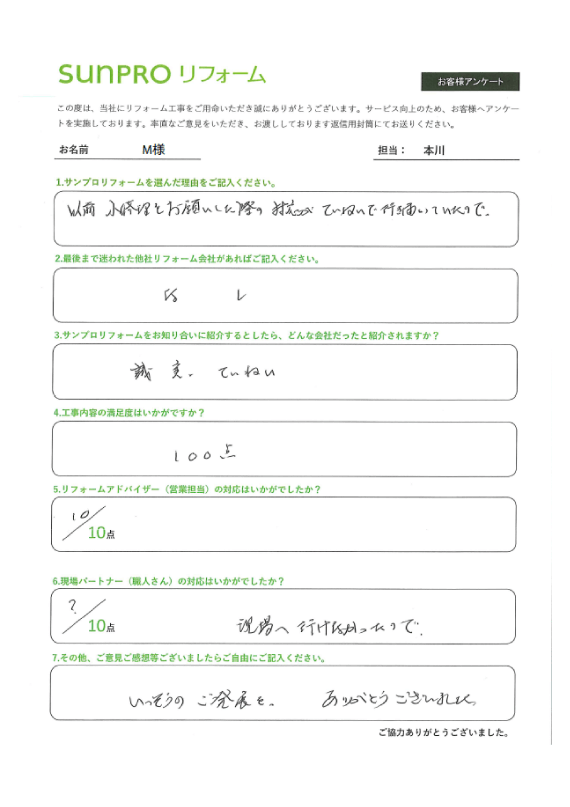 sunpro リフォーム
お客様アンケート
この度は、当社にリフォーム工事をご用命いただき誠にありがとうございます。サービス向上のため、お客様へアンケー
トを実施しております。率直なご意見をいただき、お渡ししております返信用封筒にてお送りください。
お名前 M様 担当： 本川
1.サンプロリフォームを選んだ理由をご記入ください。
以前 小修理をお願いした際の 対応が ていねいで 行き届いていたので。
2.最後まで迷われた他社リフォーム会社があればご記入ください。
なし
3.サンプロリフォームをお知り合いに紹介するとしたら、どんな会社だったと紹介されますか？
誠実、ていねい
4.工事内容の満足度はいかがですか？
100点
5.リフォームアドバイザー（営業担当）の対応はいかがでしたか？
10/10点
6.現場パートナー（職人さん）の対応はいかがでしたか？
?/10点 現場へ 行けなかったので、
7.その他、ご意見ご感想等ございましたらご自由にご記入ください。
いっそうの ご発展を。 ありがとうございました。
ご協力ありがとうございました。